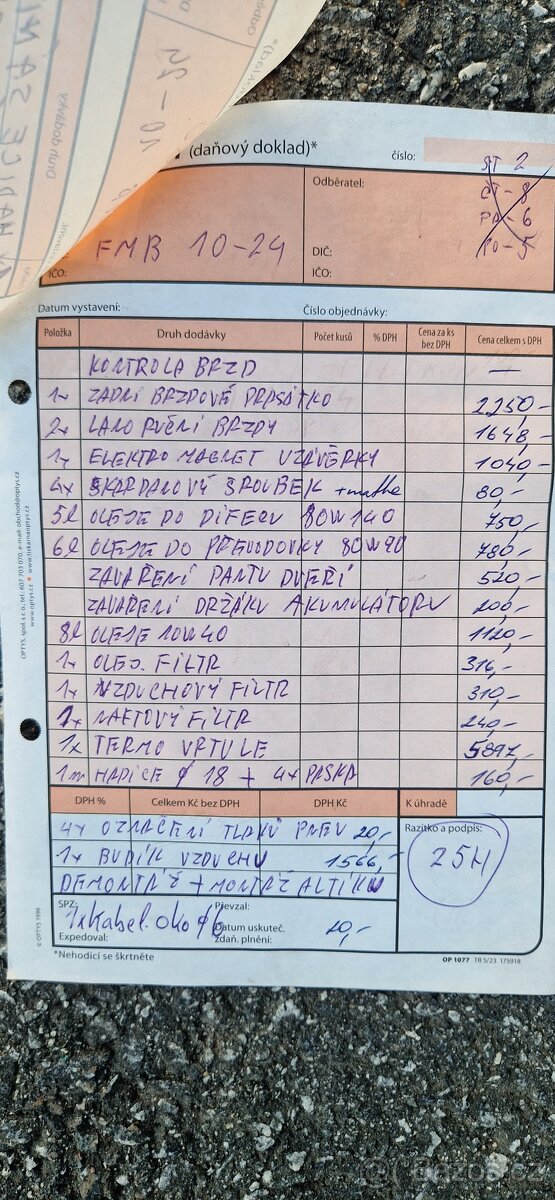 (daňový doklad)*
číslo:
Odběratel:
ÚT 2
ČT-8
PÁ-6
PO-5
FMB 10-24
DIČ:
IČO:
IČO:
Datum vystavení:
Číslo objednávky:
Položka Druh dodávky Počet kusů % DPH Cena za ks bez DPH Cena celkem s DPH
KONTROLA BRZD —
1x ZADNÍ BRZDOVÉ PRASÁTKO 2250,-
2x LANO RUČNÍ BRZDY 1648,-
1x ELEKTRO MAGNET UZÁVĚRKY 1040,-
4x ŠKARDANOVÝ ŠROUBEK + matka 80,-
5l OLEJE DO DIFECU 80W140 750,-
6l OLEJE DO PŘEVODOVKY 80W90 780,-
ZAVAŘENÍ PANTU DVEŘÍ 520,-
ZAVAŘENÍ DRŽÁKU AKUMULÁTORU 200,-
8l OLEJE 10W40 1120,-
1x OLEJ. FILTR 316,-
1x VZDUCHOVÝ FILTR 310,-
1x NAFTOVÝ FILTR 240,-
1x TERMO VRTULE 5897,-
1m HADICE ϕ 18 + 4x PÁSKA 160,-
DPH % Celkem Kč bez DPH DPH Kč K úhradě
4x OZNAČENÍ TLAKŮ PNEU 20,-
Razítko a podpis:
1x BUDÍK VZDUCHU 1566,-
25H
DEMONTÁŽ + MONTÁŽ ALTÍKU
SPZ:
Převzal:
1x kabel. oko ϕ6
Datum uskuteč. zdaň. plnění:
20,-
Expedoval:
*Nehodící se škrtněte
OP 1077 TR 5/23 175918
© OPTYS 1996
OPTYS, spol. s r. o., tel.: 607 703 070, e-mail: obchod@optys.cz
www.optys.cz ● www.tiskarnaoptys.cz
Druh dodávky
10-24
HADICE SÁNÍ
bazos.cz